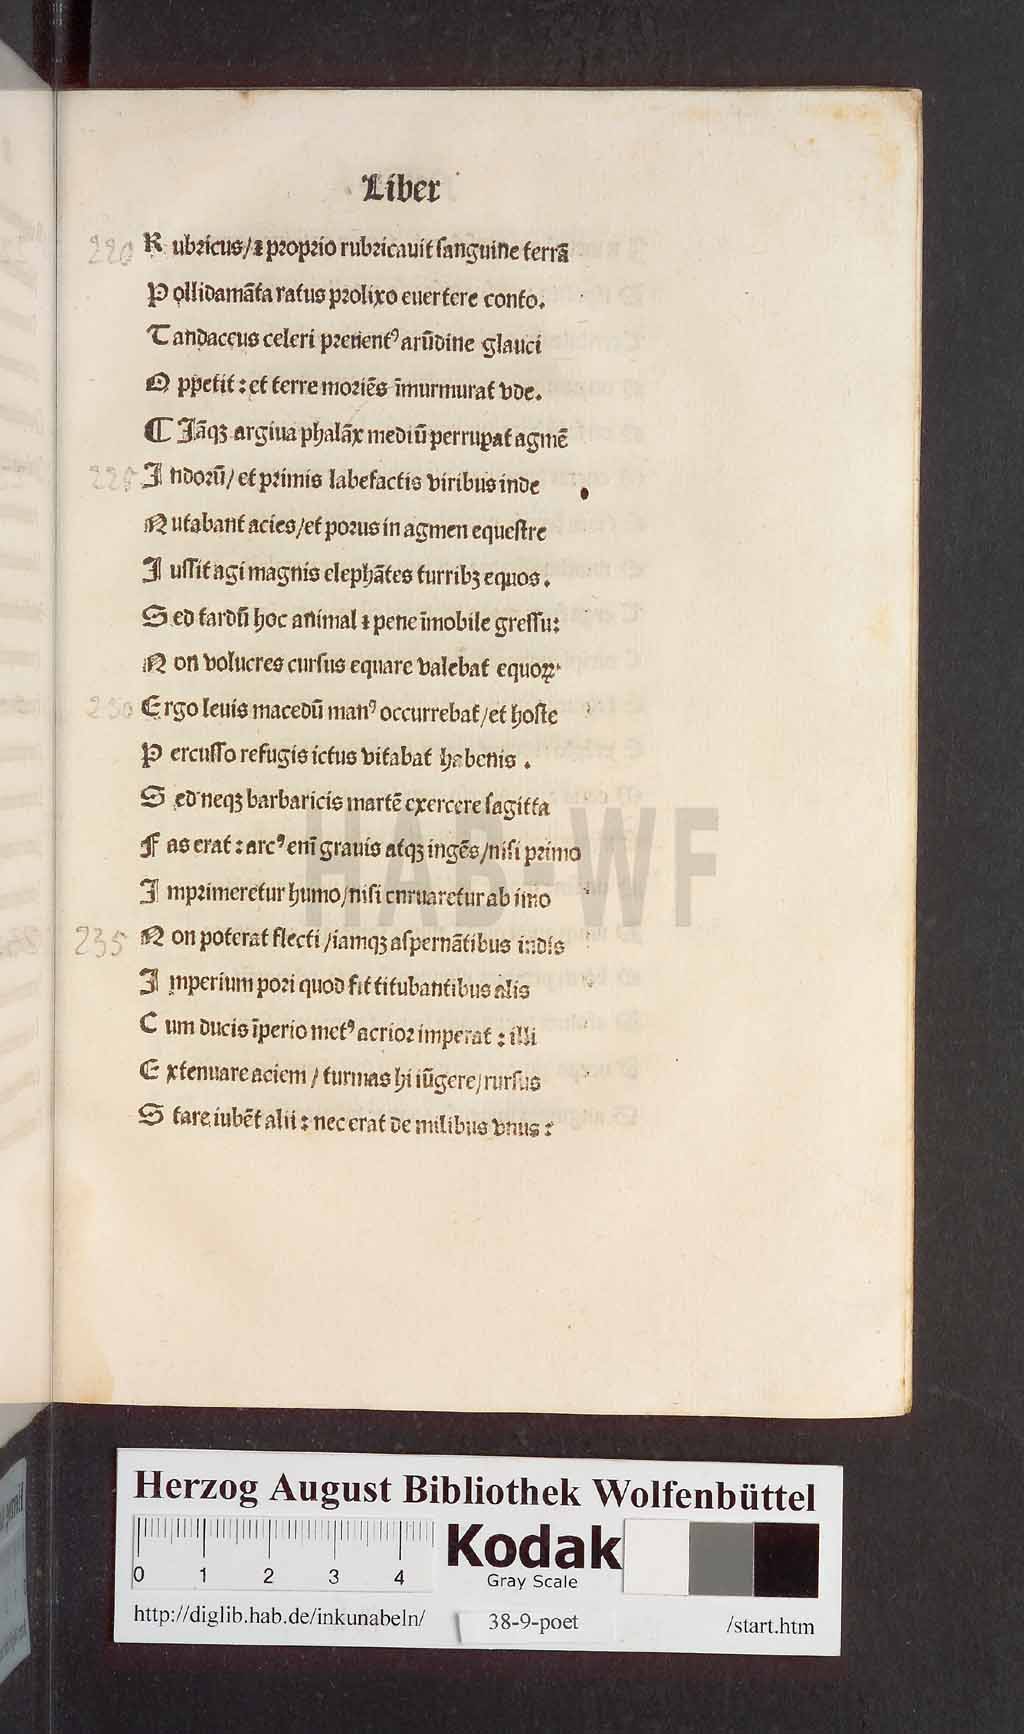 Liber
220 Rubricus/ ⁊ proprio rubricauit sanguine terrā
Pollidamāta ratus prolixo euertere conto.
Tandaceus celeri preuentꝰ arūdine glauci
Oppetit: et terre moriēs īmurmurat vde.
¶ Iāqꝫ argiua phalāx mediū perrupat agmē
225 Indorū/ et primis labefactis viribus inde
Nutabant acies/ et porus in agmen equestre
Iussit agi magnis elephātes turribꝫ equos.
Sed tardū hoc animal ⁊ pene īmobile gressu:
Non volucres cursus equare valebat equoꝝ
230 Ergo leuis macedū manꝰ occurrebat/ et hoste
Percusso refugis ictus vitabat habenis.
Sed neqꝫ barbaricis martē exercere sagitta
Fas erat: arcꝰ enī grauis atqꝫ ingēs/ nisi primo
Imprimeretur humo/ nisi cnruaretur ab imo
235 Non poterat flecti/ iamqꝫ aspernātibus indis
Imperium pori quod fit titubantibus alis
Cum ducis īperio metꝰ acrior imperat: illi
Extenuare aciem/ turmas hi iūgere/ rursus
Stare iubēt alii: nec erat de milibus vnus:
HAB-WF
Herzog August Bibliothek Wolfenbüttel
0 1 2 3 4
Kodak
Gray Scale
http://diglib.hab.de/inkunabeln/ 38-9-poet /start.htm